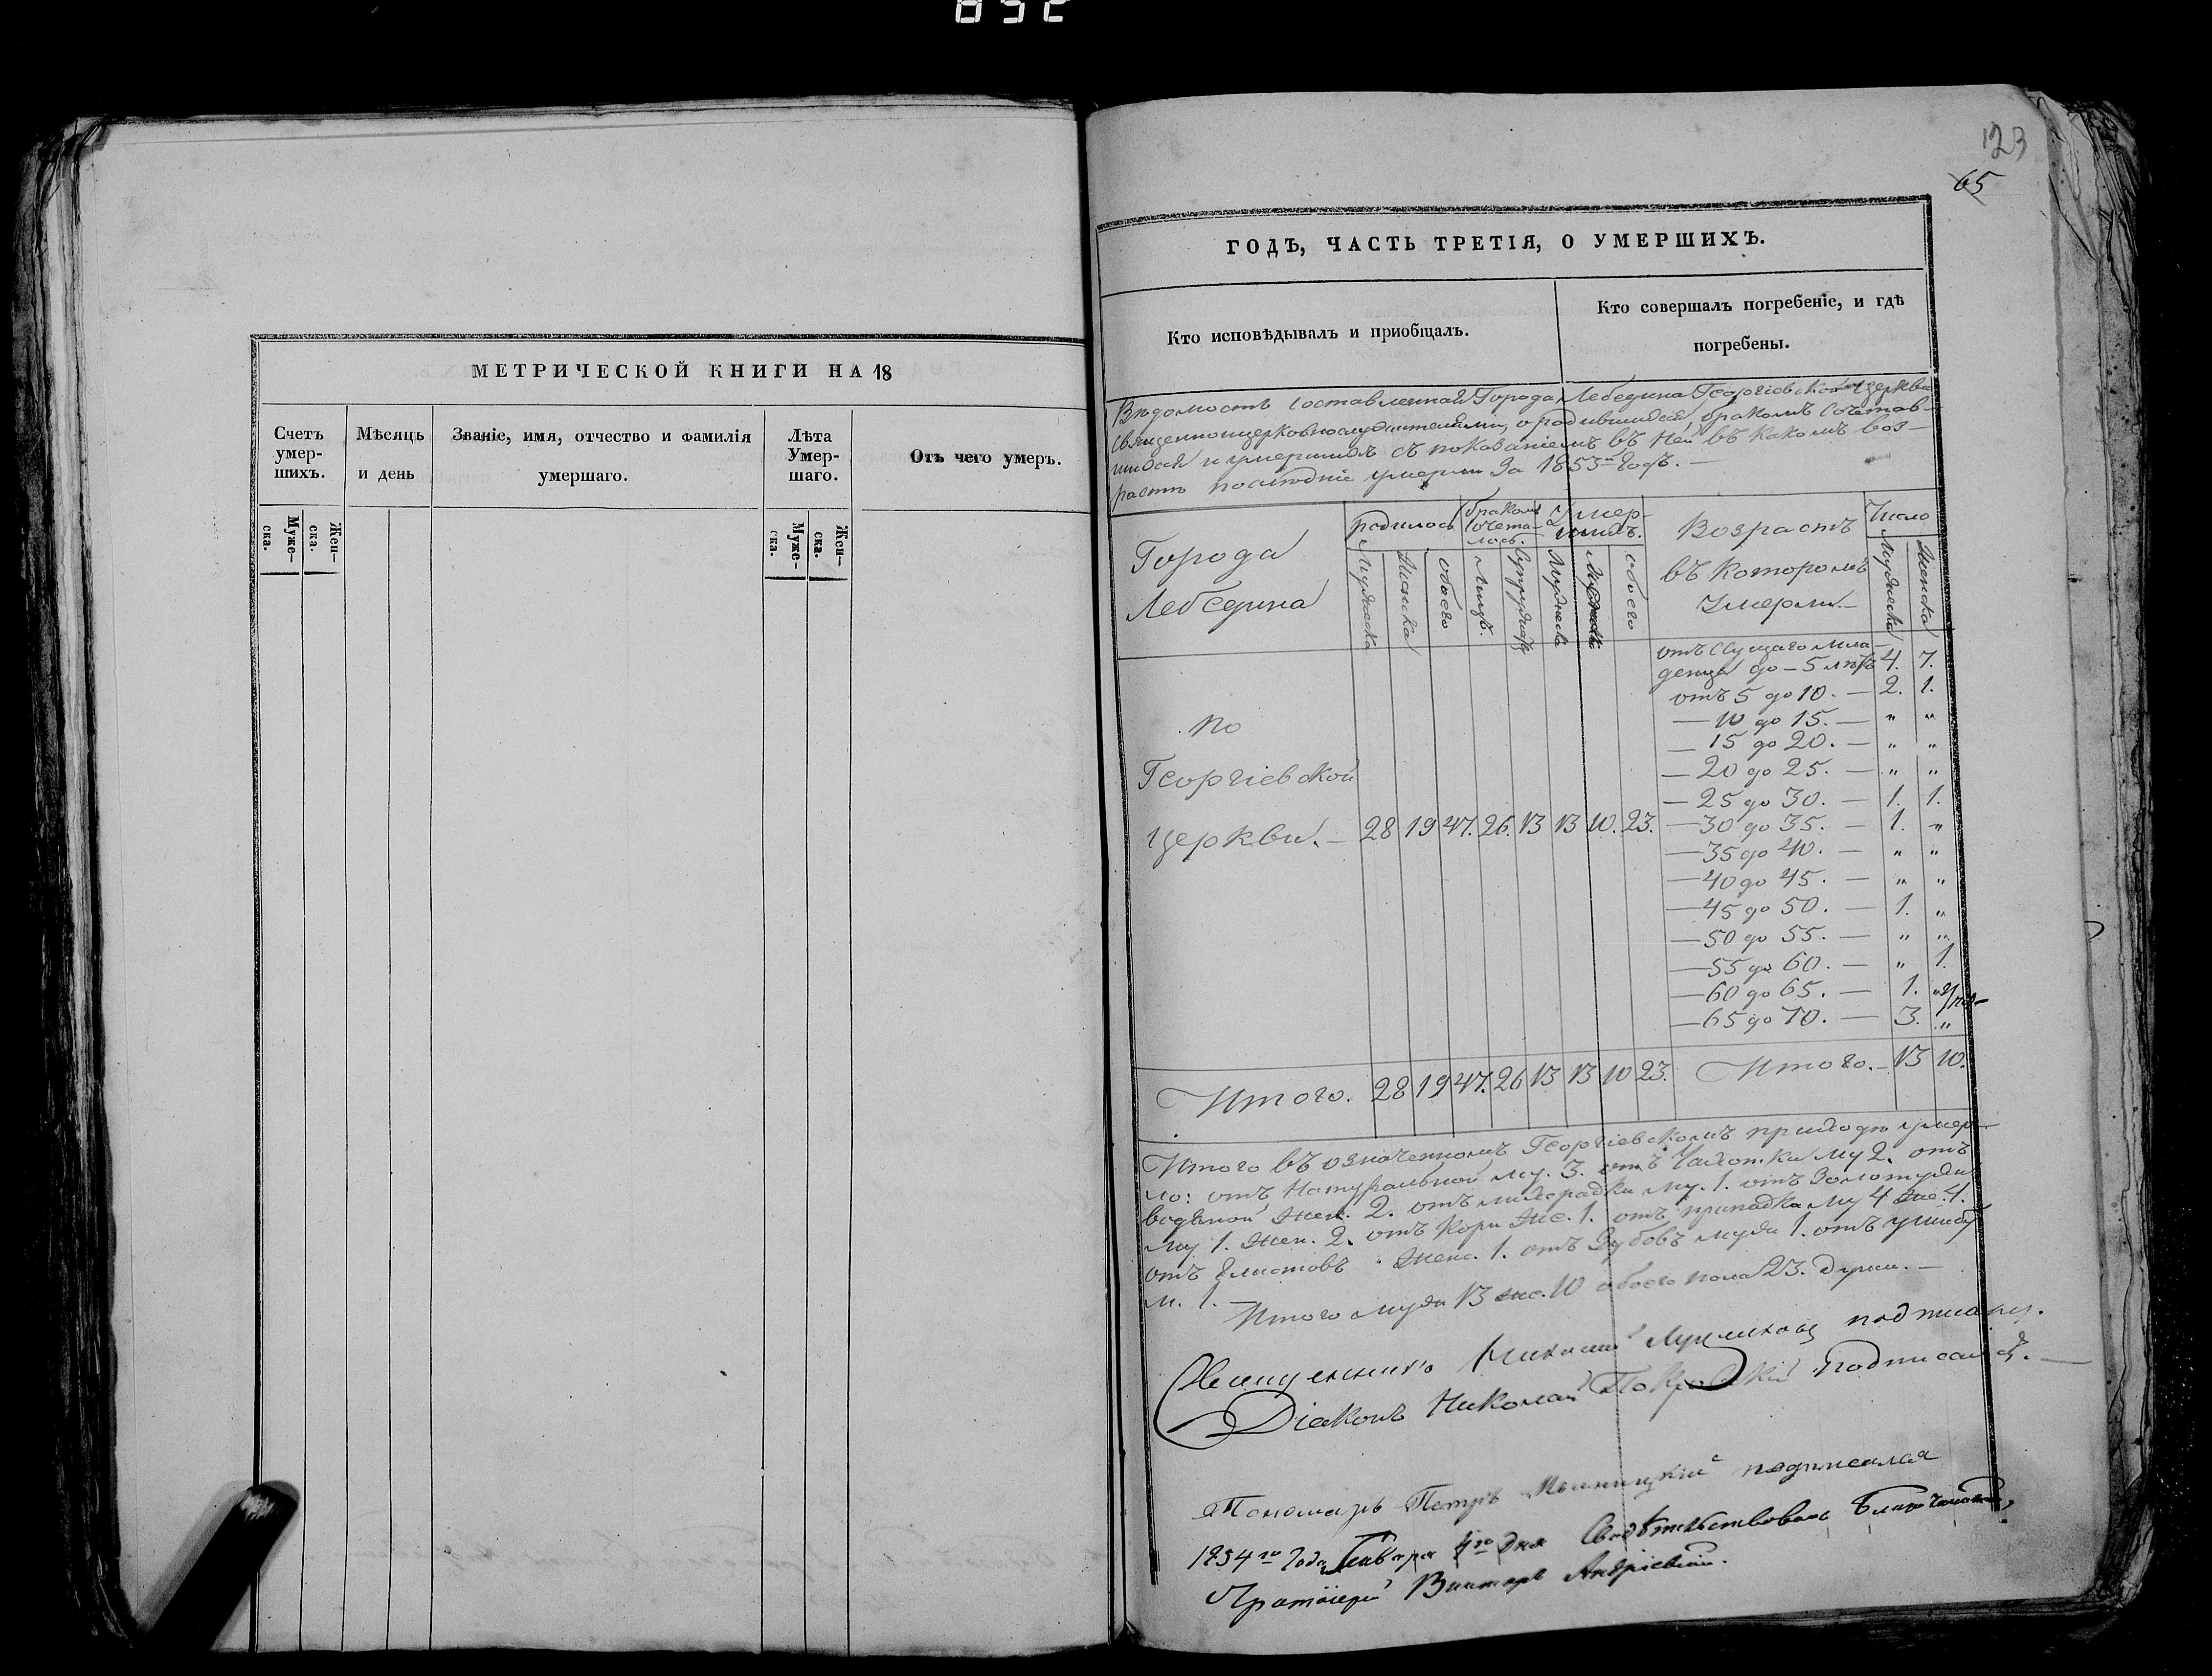 852
МЕТРИЧЕСКОЙ КНИГИ НА 18
Счетъ умер- шихъ.
Мѣсяцъ и день
Званіе, имя, отчество и фамилія умершаго.
Лѣта Умер- шаго.
Отъ чего умеръ.
Муже- ска.
Жен- ска.
Муже- ска.
Жен- ска.
123
65
ГОДЪ, ЧАСТЬ ТРЕТІЯ, О УМЕРШИХЪ.
Кто исповѣдывалъ и приобщалъ.
Кто совершалъ погребеніе, и гдѣ
погребены.
Вѣдомость составленная Города Лебедина Георгіевской церкви
священноцерковнослужителями, о родившихся, бракомъ сочетав-
шихся и умершихъ съ показаніемъ въ ней въ какомъ воз-
растѣ послѣдніе умерли За 1853й Годъ. —
Города
Лебедина
родилось
бракомъ сочета- лось.
Умер- шихъ.
Возрастъ
въ которомъ
умерли. —
Число
Мужеска
Женска
обоего
Лицъ.
Супружествъ
Мужеска
Женска
обоего
Мужеска
Женска
отъ Сущаго мла-
денца до — 5 лѣтъ 4. 7.
отъ 5 до 10. — 2. 1.
— 10 до 15. — " "
— 15 до 20. — " "
— 20 до 25. — " "
— 25 до 30. — 1. 1.
— 30 до 35. — 1. "
— 35 до 40. — " "
— 40 до 45. — " "
— 45 до 50. — 1. "
— 50 до 55. — " "
— 55 до 60. — " 1.
— 60 до 65. — 1. "
— 65 до 70. — 3. "
по
Георгіевской
церкви. — 28 19 47. 26. 13 13 10. 23.
Итого. 28 19 47. 26 13 13 10 23. Итого. — 13 10.
Итого въ означенномъ Георгіевскомъ приходѣ умер-
ло: отъ Натуральной му. 3. отъ Чахотки му 2. отъ
водяной жен. 2. отъ лихорадки му. 1. отъ Золотухи
му 1. жен. 2. отъ Кори же. 1. отъ припадка му 4 же. 4.
отъ Глистовъ женс. 1. отъ Зубовъ муж 1. отъ ушибу
м. 1. —
Итого муж 13 же. 10 обоего пола 23. души. —
Священникъ подписался.
Діаконъ Николай Покровскій подписался. —
Пономарь Петръ подписался
1854го Года Генваря дня Свидѣтельствовалъ Благочинный,
Протоіерей Викторъ Андріевскій.